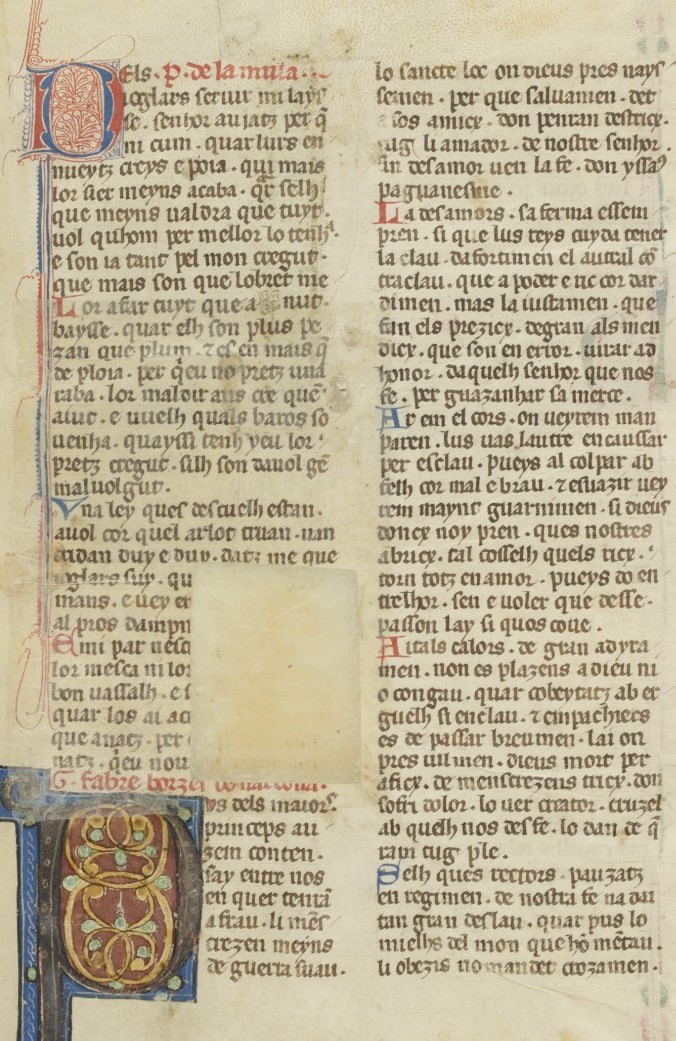 Els · P · de la mula ·
D uoglars seruir mi lays
se · senhor auiatz per q̃
ni cum · quar lurs en
nueytz creys e poia · qui mais
lor sier meyns acaba · q̃r selh
que meyns ualdra que tuyt ·
uol quhom per mellor lo tenh
e son ia tant pel mon cregut ·
que mais son que lobret me
Lor afar tuyt que a nut ·
baysse · quar elh son plus pe
zan que plum · ⁊ es en mais q̃
de ploia · per q̃eu no pretz una
raba · lor maldir ans cre quẽ
aiut · e uuelh quals baros so
uenha · quayssi tenh yeu lor
pretz cregut · silh son dauol gẽ
mal uolgut ·
Vna ley ques descuelh estan ·
auol cor quel arlot truan · uan
cridan duy e duy · datz me que
ioglars suy · qu
mans · e uey er
al pros dampn
E mi par nesc
lor mesca ni lor
bon uassalh · e s
quar los ai ac
que anatz · per
natz · q̃eu nou
G · fabre borzes
D ys dels maiors
princeps au
zem conten ·
say entre nos
en quer temia
a frau · li mẽs
crezen meyns
de guerra suau ·
lo sancte loc on dieus pres nays
semen · per que saluamen · det
sos amicx · don penran destricx ·
tug li amador · de nostre senhor ·
an desamor uen la fe · don yssa
paguanesme ·
La desamors · sa ferma essem
pren · si que lus teys cuyda tener
la clau · dafortimen el autral cõ
traclau · que a poder e ric cor dar
dimen · mas la iustamen · que
fan els prezicx · degran als men
dicx · que son en error · uirar ad
honor · daquelh senhor que nos
fe · per guazanhar sa merce ·
Ar em el cors · on ueyrem man
paren · lus uas lautre encaussar
per esclau · pueys al colpar ab
felh cor mal e brau · ⁊ esuazir uey
rem maynt guarnimen · si dieus
doncx noy pren · ques nostres
abricx · tal cosselh quels ricx ·
torn totz en amor · pueys do en
trelhor · sen e uoler que desse ·
passon lay si quos coue ·
Aitals calors · de gran adyra
men · non es plazens a dieu ni
o congau · quar cobeytatz ab er
guelh si enclau · ⁊ empachiers
es de passar breumen · lai on
pres uilmen · dieus mort per
aficx · de menscrezens tricx · don
sofri dolor · lo uer creator · cruzel
ab quelh nos desfe · lo dan de q̃
rapi tug ple ·
Selh ques rectors · pauzatz
en regimen · de nostra fe na dat
tan gran deslau · quar pus lo
mielhs del mon que hõ mẽtau ·
li obezis no mandet crozamen ·